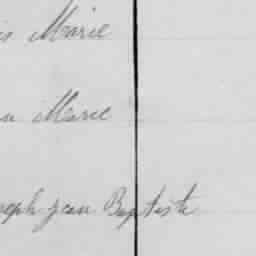 is Marie
n Marie
seph jean Baptiste